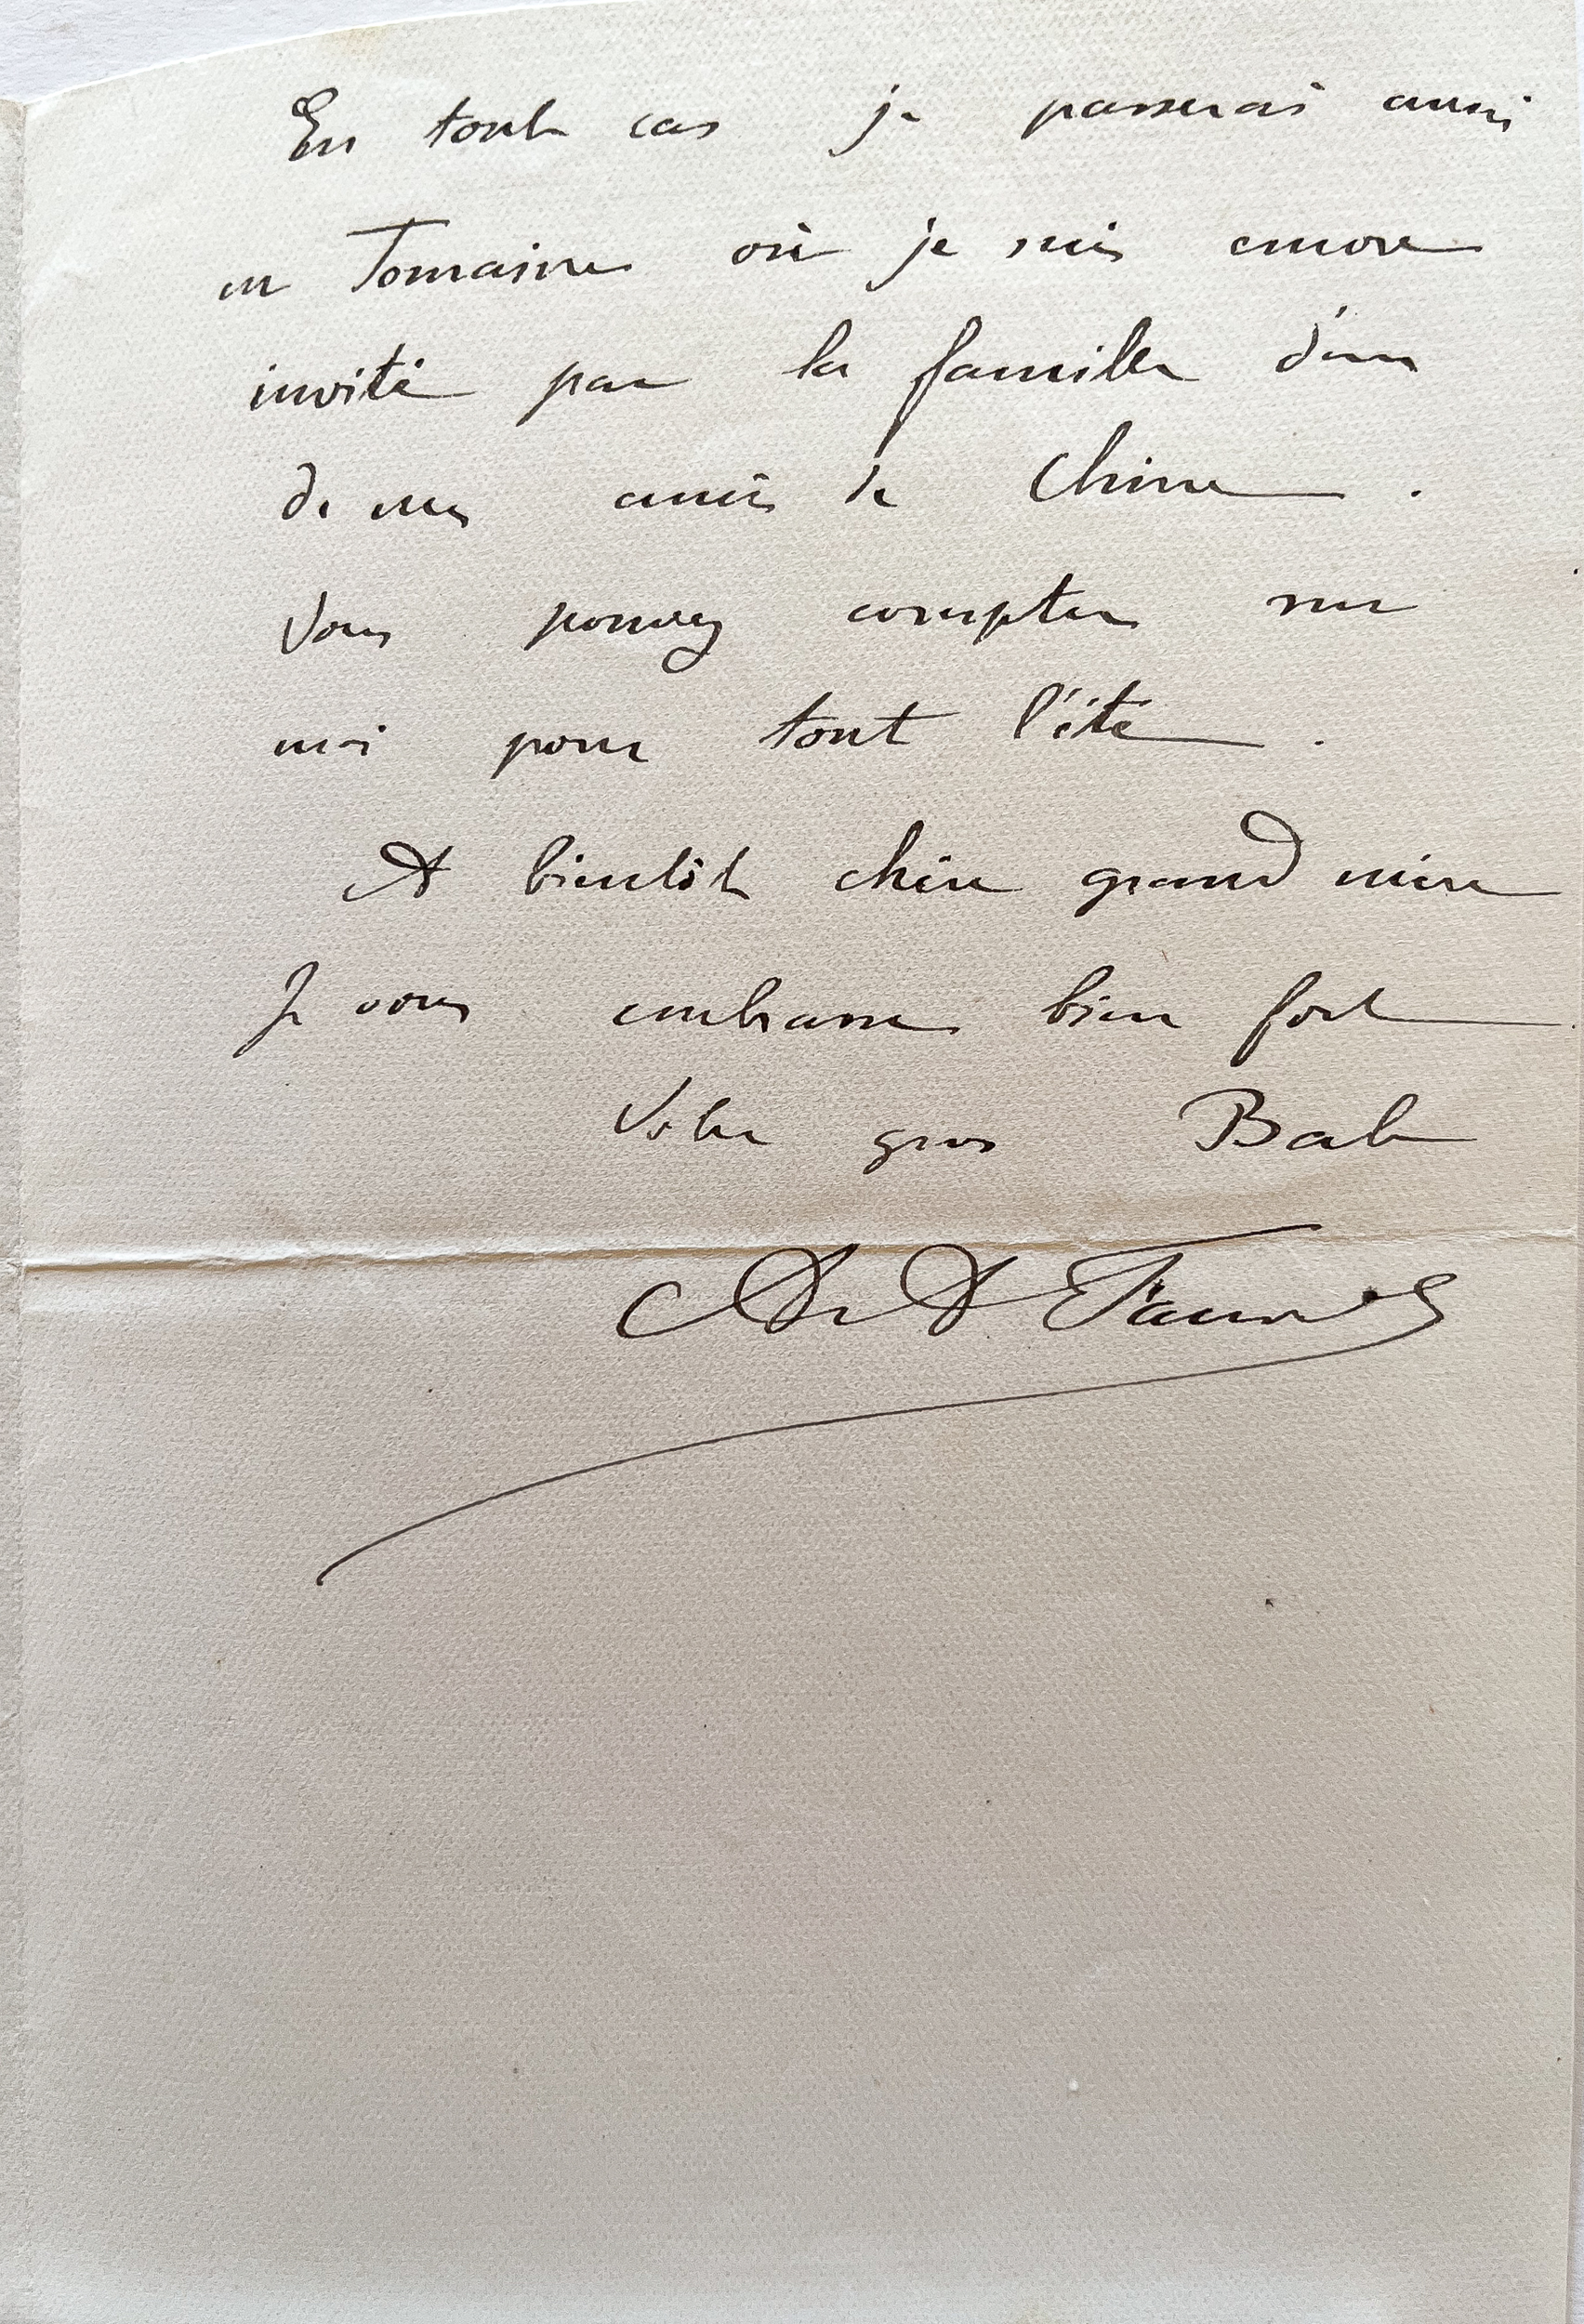 En tout cas je passerai aussi
en Touraine où je suis encore
invité par la famille d'un
de mes amis de Chine.
Vous pouvez compter sur
moi pour tout l'été.
A bientôt chère grand mère
Je vous embrasse bien fort
Votre gros Bab